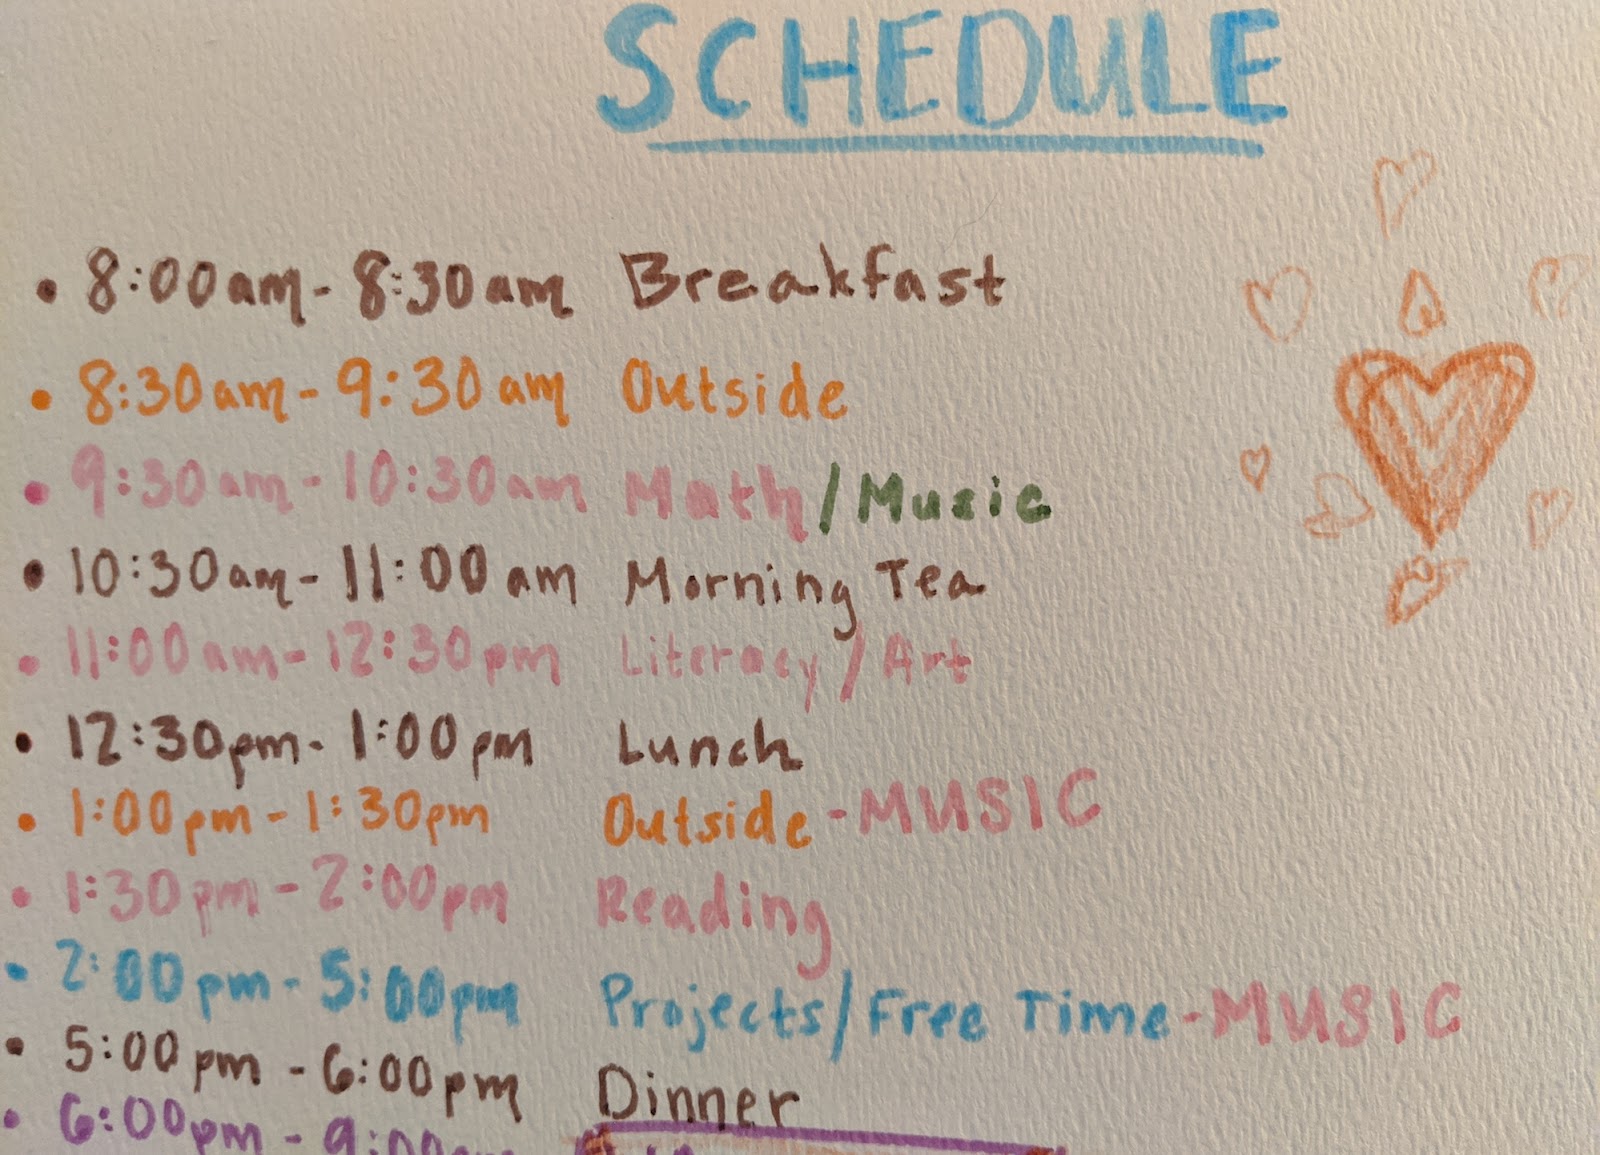 SCHEDULE
• 8:00am - 8:30am Breakfast
• 8:30am - 9:30am Outside
• 9:30am - 10:30am Math/Music
• 10:30am - 11:00am Morning Tea
• 11:00am - 12:30pm Literacy/Art
• 12:30pm - 1:00pm Lunch
• 1:00pm - 1:30pm Outside - MUSIC
• 1:30pm - 2:00pm Reading
• 2:00pm - 5:00pm Projects/Free Time - MUSIC
• 5:00pm - 6:00pm Dinner
• 6:00pm - 9:00pm